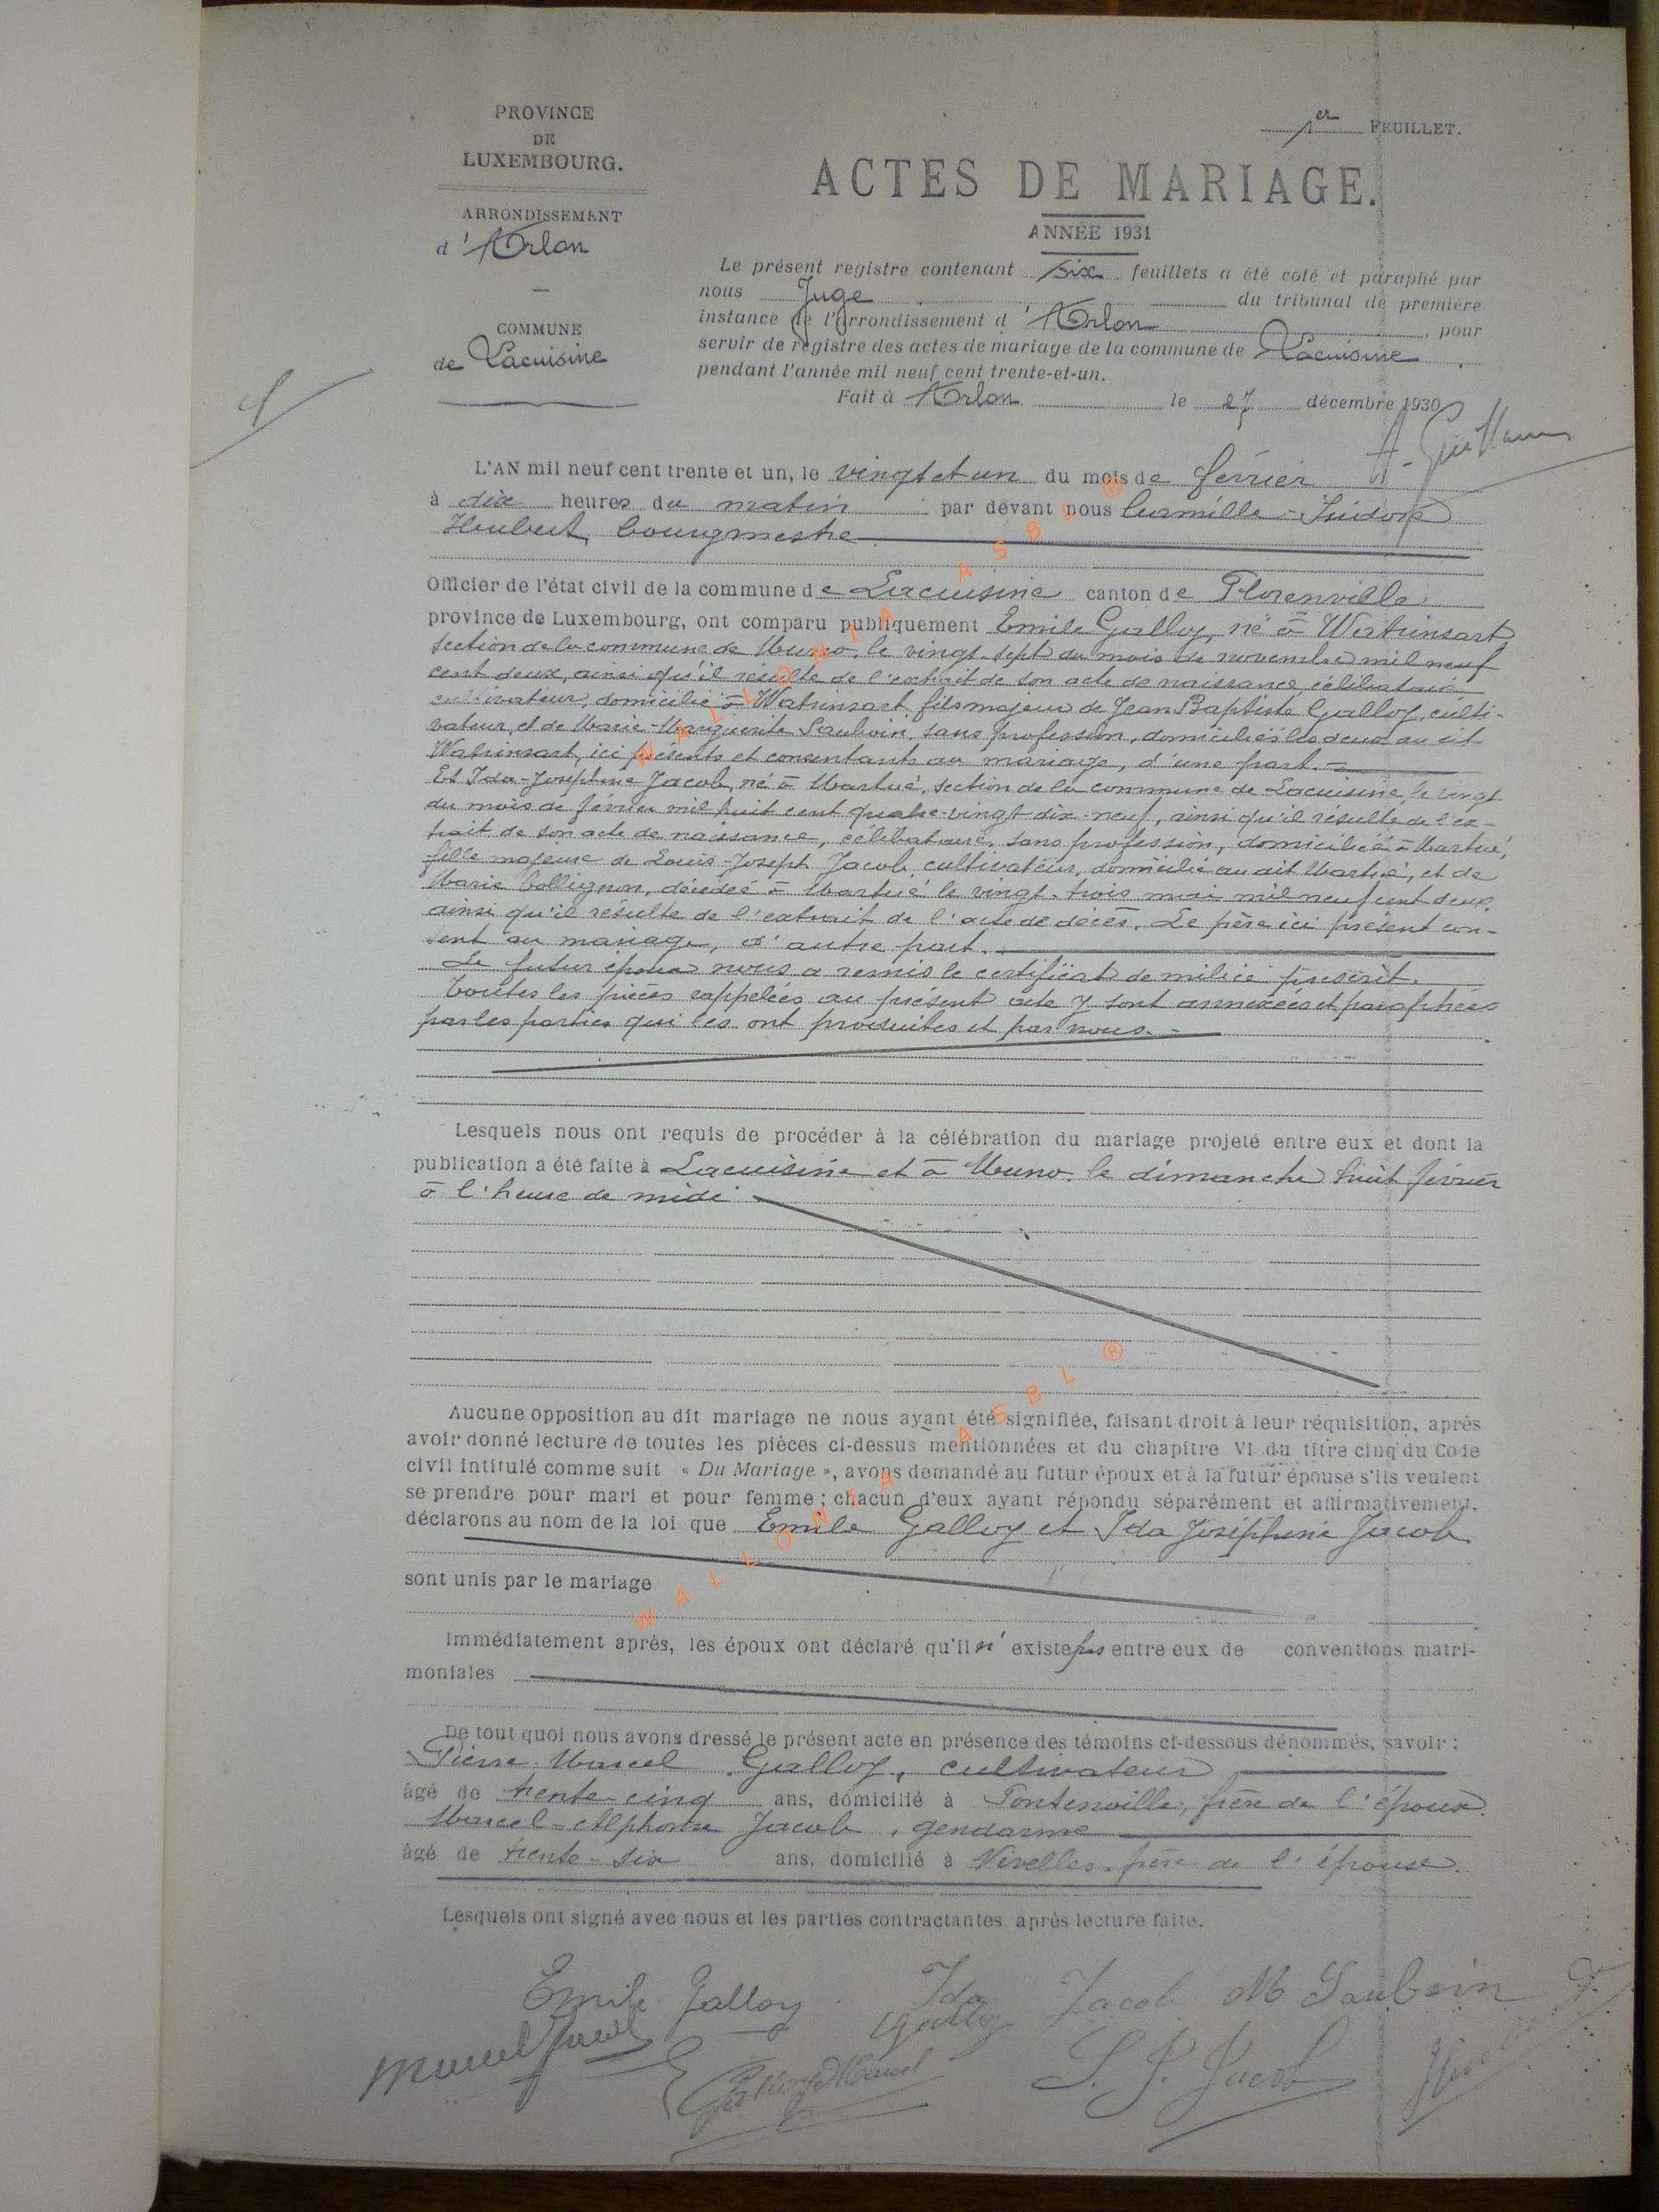 PROVINCE
DE
LUXEMBOURG.
ARRONDISSEMENT
d'Arlon
COMMUNE
de Lacuisine
1er FEUILLET.
ACTES DE MARIAGE.
ANNÉE 1931
Le présent registre contenant six feuillets a été coté et paraphé par
nous Juge du tribunal de première
instance de l'arrondissement d'Arlon, pour
servir de registre des actes de mariage de la commune de Lacuisine
pendant l'année mil neuf cent trente-et-un.
Fait à Arlon le 27 décembre 1930
1
L'AN mil neuf cent trente et un, le vingt et un du mois de février
à dix heures du matin par devant nous Camille-Isidore
Hubert, bourgmestre
Officier de l'état civil de la commune de Lacuisine canton de Florenville
province de Luxembourg, ont comparu publiquement Emile Galloy, né à Watrinsart
section de la commune de Muno, le vingt-sept du mois de novembre mil neuf
cent deux, ainsi qu'il résulte de l'extrait de son acte de naissance, célibataire,
cultivateur, domicilié à Watrinsart, fils majeur de Jean Baptiste Galloy, culti-
vateur, et de Marie-Marguerite Sauboin, sans profession, domiciliés les deux au dit
Watrinsart, ici présents et consentants au mariage, d'une part.
Et Ida-Joséphine Jacob, né à Martué, section de la commune de Lacuisine, le vingt
du mois de février mil huit cent quatre-vingt-dix-neuf, ainsi qu'il résulte de l'ex-
trait de son acte de naissance, célibataire, sans profession, domiciliée à Martué,
fille majeure de Louis-Joseph Jacob, cultivateur, domicilié au dit Martué, et de
Marie Collignon, décédée à Martué le vingt-trois mai mil neuf cent deux,
ainsi qu'il résulte de l'extrait de l'acte de décès. Le père ici présent con-
sent au mariage, d'autre part.
Le futur époux nous a remis le certificat de milice prescrit.
Toutes les pièces rappelées au présent acte y sont annexées et paraphées
par les parties qui les ont produites et par nous.
Lesquels nous ont requis de procéder à la célébration du mariage projeté entre eux et dont la
publication a été faite à Lacuisine et à Muno, le dimanche huit février
à l'heure de midi
Aucune opposition au dit mariage ne nous ayant été signifiée, faisant droit à leur réquisition, après
avoir donné lecture de toutes les pièces ci-dessus mentionnées et du chapitre VI du titre cinq du Code
civil intitulé comme suit « Du Mariage », avons demandé au futur époux et à la futur épouse s'ils veulent
se prendre pour mari et pour femme ; chacun d'eux ayant répondu séparément et affirmativement,
déclarons au nom de la loi que Emile Galloy et Ida Joséphine Jacob
sont unis par le mariage
Immédiatement après, les époux ont déclaré qu'il n'existe pas entre eux de conventions matri-
moniales
De tout quoi nous avons dressé le présent acte en présence des témoins ci-dessous dénommés, savoir :
Pierre Marcel Galloy, cultivateur
âgé de trente-cinq ans, domicilié à Fontenoille, frère de l'époux.
Marcel-Alphonse Jacob, gendarme
âgé de trente-six ans, domicilié à Nivelles, frère de l'épouse.
Lesquels ont signé avec nous et les parties contractantes, après lecture faite.
Emile Galloy Ida Jacob M Sauboin
Marcel Jacob Galloy Marcel Galloy L. J. Jacob
WALLONIA ASBL ®
WALLONIA ASBL ®